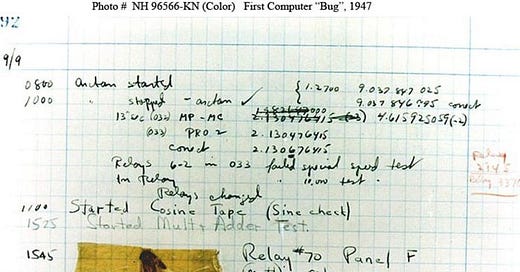 Photo # NH 96566-KN (Color) First Computer “Bug”, 1947
92
9/9
0800 Antan started
1000 " stopped - antan ✓ { 1.2700 9.037 847 025
9.037 846 995 conect
13"uc (033) MP - MC 2.130476415 (-3) 4.615925059(-2)
(033) PRO 2 2.130476415
conect 2.130676415
Relays 6-2 in 033 failed special speed test
In Relay " 10,000 test.
Relays changed
Relay
1100 Started Cosine Tape (Sine check)
1525 Started Mult+ Adder Test.
1545 Relay #70 Panel F